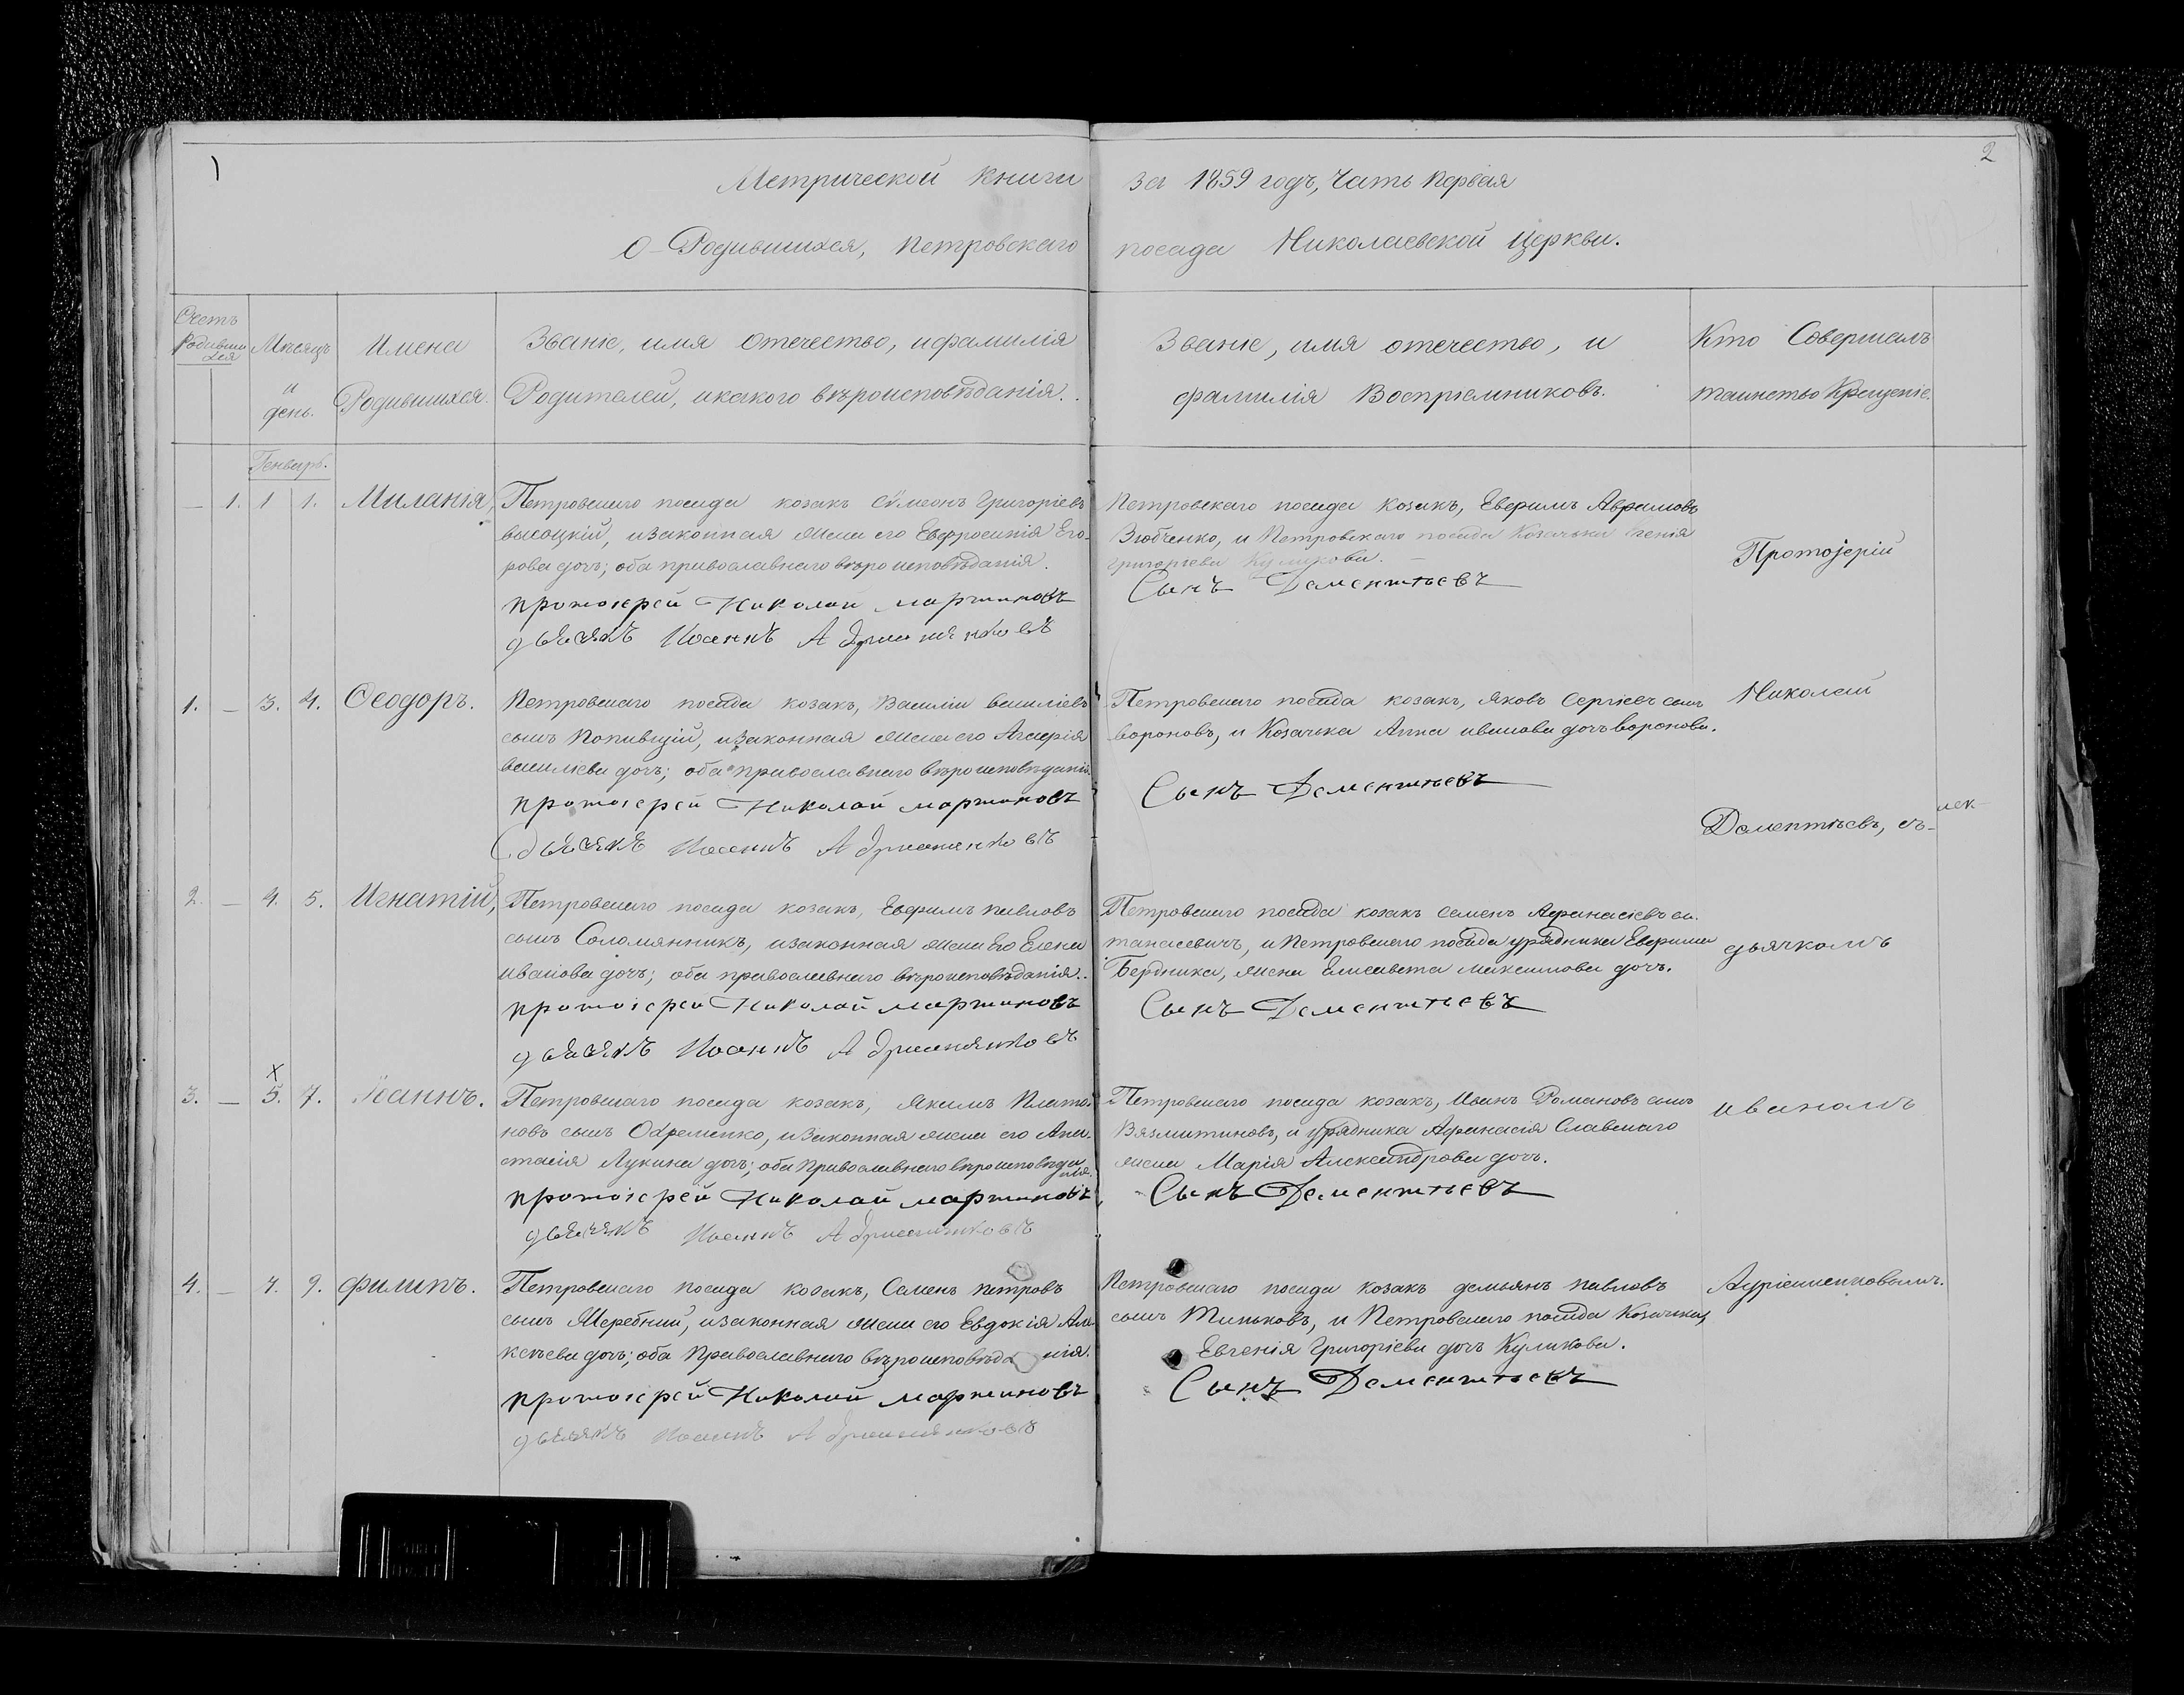 1
2
Метрической книги за 1859 годъ, Часть Первая
О Родившихся, Петровскаго посада Николаевской Церкви.
Счетъ Родившихся
Мѣсяцъ и день.
Имена Родившихся.
Званіе, имя отечество, и фамилія
Родителей, и какого вѣроисповѣданія.
Званіе, имя отечество, и
фамилія Воспріемниковъ.
Кто Совершалъ
таинство Крещеніе.
Генваръ.
— 1. 1 1. Миланія,
Петровскаго посада козакъ Сѵмеонъ Григоріевъ
высоцкій, и законная жена его Евфросинія Его-
рова дочь; оба православнаго вѣроисповѣданія.
протоіерей Николай мартиновъ
дьячекъ Иоаннъ Адрианенковъ
Петровскаго посада козакъ, Евфимъ Аврамовъ
Зюбченко, и Петровскаго посада Козачька
григорьева Куликова.
Сынъ Дементьевъ
Протоіерій
1. — 3. 4. Ѳеодоръ.
Петровскаго посада козакъ, Василій василіевъ
сынъ Попивщій, и законная жена его Агаѳрія
василіева дочь; оба православнаго вѣроисповѣданія.
протоіерей Николай мартиновъ
дьячекъ Иоаннъ Адрианенковъ
Петровскаго посада козакъ, Яковъ Сергіевъ сынъ
вороновъ, и Козачька Анна иванова дочь воронова.
Сынъ Дементьевъ
Николай
Дементьевъ, съ
2. — 4. 5. Игнатій,
Петровскаго посада козакъ, Евфимъ павловъ
сынъ Соломянникъ, и законная жена Его Елена
иванова дочь; оба православнаго вѣроисповѣданія.
протоіерей Николай мартиновъ
дьячекъ Иоаннъ Адрианенковъ
Петровскаго посада козакъ семенъ Афанасіевъ
и Петровскаго посада урядника Евфима
Бердника, жена Елисавета максимова дочь.
Сынъ Дементьевъ
дьячкомъ
х
3. — 5. 7. Іоаннъ.
Петровскаго посада козакъ, Якимъ Плато-
новъ сынъ Охременко, и законная жена его Ана-
стасія Лукина дочь; оба православнаго вѣроисповѣданія.
протоіерей Николай мартиновъ
дьячекъ Иоаннъ Адрианенковъ
Петровскаго посада козакъ, Иванъ Романовъ сынъ
Вязмитиновъ, и урядника Афанасія Славскаго
жена Марія Александрова дочь.
Сынъ Дементьевъ
иваномъ
4. — 7. 9. филипъ.
Петровскаго посада козакъ, Семенъ петровъ
сынъ Жеребний, и законная жена его Евдокія Але-
ксѣева дочь; оба Православнаго вѣроисповѣданія.
протоіерей Николай мартиновъ
дьячекъ Иоаннъ Адрианенковъ
Петровскаго посада козакъ демьянъ павловъ
сынъ Тиньковъ, и Петровскаго посада Козачька,
Евгенія Григоріева дочь Куликова.
Сынъ Дементьевъ
Адріяненковымъ.